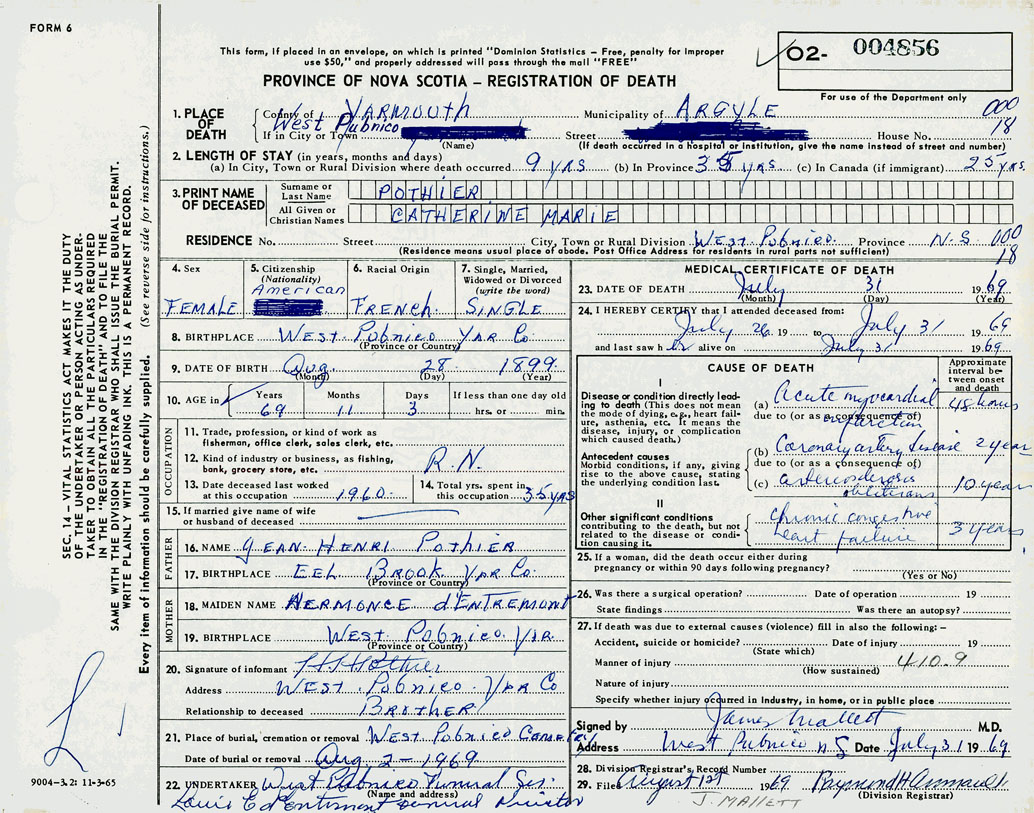 FORM 6
This form, if placed in an envelope, on which is printed "Dominion Statistics – Free, penalty for improper
use $50," and properly addressed will pass through the mail "FREE"
O2- 004856
For use of the Department only
PROVINCE OF NOVA SCOTIA – REGISTRATION OF DEATH
000
18
1. PLACE OF DEATH
County of YARMOUTH Municipality of ARGYLE
If in City or Town West Pubnico Street House No.
(Name) (If death occurred in a hospital or institution, give the name instead of street and number)
2. LENGTH OF STAY (in years, months and days)
(a) In City, Town or Rural Division where death occurred 9 YRS (b) In Province 35 yrs. (c) In Canada (if immigrant) 25 yrs.
3. PRINT NAME OF DECEASED
Surname or Last Name POTHIER
All Given or Christian Names CATHERINE MARIE
RESIDENCE No. Street City, Town or Rural Division WEST. Pubnico. Province N.S. 000
18
(Residence means usual place of abode. Post Office Address for residents in rural parts not sufficient)
4. Sex FEMALE
5. Citizenship (Nationality) American
6. Racial Origin FRENCH.
7. Single, Married, Widowed or Divorced (write the word) SINGLE
8. BIRTHPLACE WEST. Pubnico YAR Co
(Province or Country)
9. DATE OF BIRTH Aug. 28 1899
(Month) (Day) (Year)
10. AGE in Years Months Days If less than one day old
69 11 3 hrs. or min.
OCCUPATION
11. Trade, profession, or kind of work as
fisherman, office clerk, sales clerk, etc.
12. Kind of industry or business, as fishing,
bank, grocery store, etc. R.N.
13. Date deceased last worked
at this occupation 1960.
14. Total yrs. spent in
this occupation 35 YRS
15. If married give name of wife
or husband of deceased
FATHER
16. NAME JEAN HENRI POTHIER
17. BIRTHPLACE EEL BROOK YAR Co.
(Province or Country)
MOTHER
18. MAIDEN NAME HERMONCE d'ENTREMONT
19. BIRTHPLACE WEST. Pubnico. YAR
(Province or Country)
20. Signature of informant Pothier
Address WEST. Pubnico. YAR Co
Relationship to deceased BROTHER
21. Place of burial, cremation or removal WEST Pubnico
Date of burial or removal Aug. 2 – 1969
22. UNDERTAKER West Pubnico Funeral Ser.
(Name and address)
Louis C d'Entremont Funeral Director
MEDICAL CERTIFICATE OF DEATH
23. DATE OF DEATH July 31 1969
(Month) (Day) (Year)
24. I HEREBY CERTIFY that I attended deceased from:
July 26 19 to July 31 1969
and last saw her alive on July 31 1969
CAUSE OF DEATH
Approximate interval between onset and death
I
Disease or condition directly leading
to death (This does not mean
the mode of dying, e.g., heart failure,
asthenia, etc. It means the
disease, injury, or complication
which caused death.)
(a) Acute myocardial infarction 48 hours
due to (or as a consequence of)
Antecedent causes
Morbid conditions, if any, giving
rise to the above cause, stating
the underlying condition last.
(b) Coronary artery disease 2 years
due to (or as a consequence of)
(c) arteriosclerosis obliterans 10 years
II
Other significant conditions
contributing to the death, but not
related to the disease or condition
causing it.
chronic congestive
heart failure 3 years
25. If a woman, did the death occur either during
pregnancy or within 90 days following pregnancy?
(Yes or No)
26. Was there a surgical operation? Date of operation 19
State findings Was there an autopsy?
27. If death was due to external causes (violence) fill in also the following: –
Accident, suicide or homicide? Date of injury 19
(State which)
Manner of injury 410.9
(How sustained)
Nature of injury
Specify whether injury occurred in Industry, in home, or in public place
Signed by James Mallett M.D.
Address West Pubnico N.S. Date July 31 1969
28. Division Registrar's Record Number
29. Filed August 1st 1969 Raymond H
(Division Registrar)
J. MALLETT
SEC. 14 – VITAL STATISTICS ACT MAKES IT THE DUTY
OF THE UNDERTAKER OR PERSON ACTING AS UNDER-
TAKER TO OBTAIN ALL THE PARTICULARS REQUIRED
IN THE "REGISTRATION OF DEATH" AND TO FILE THE
SAME WITH THE DIVISION REGISTRAR WHO SHALL ISSUE THE BURIAL PERMIT.
WRITE PLAINLY WITH UNFADING INK. THIS IS A PERMANENT RECORD.
Every item of information should be carefully supplied. (See reverse side for instructions.)
9004–3.2: 11-3-65